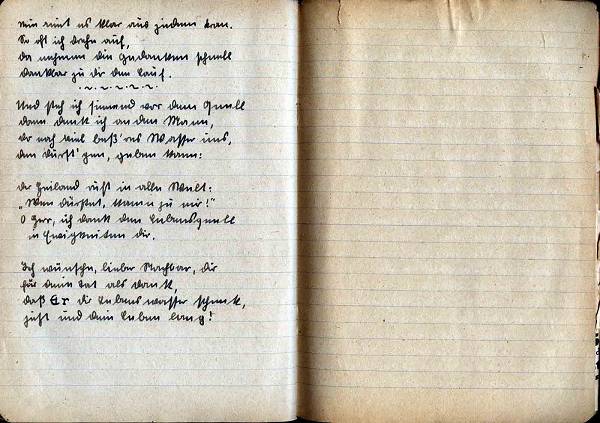 Nun rinnt es klar aus jedem Kran.
So oft ich drehe auf,
da nehmen die Gedanken schnell
dankbar zu dir den Lauf.
Und steh ich sinnend vor dem Quell
dann denk ich an den Mann,
der noch viel beß'res Wasser uns,
den durst'gen, geben kann:
der Heiland ruft in alle Welt:
„Wen dürstet, komm zu mir!"
O Herr, ich dank dem Lebensquell
in Ewigkeiten dir.
Ich wünsche, lieber Nachbar, dir
für deine Tat als Dank,
daß Er dir Lebenswasser schenk,
jetzt und dein Leben lang!